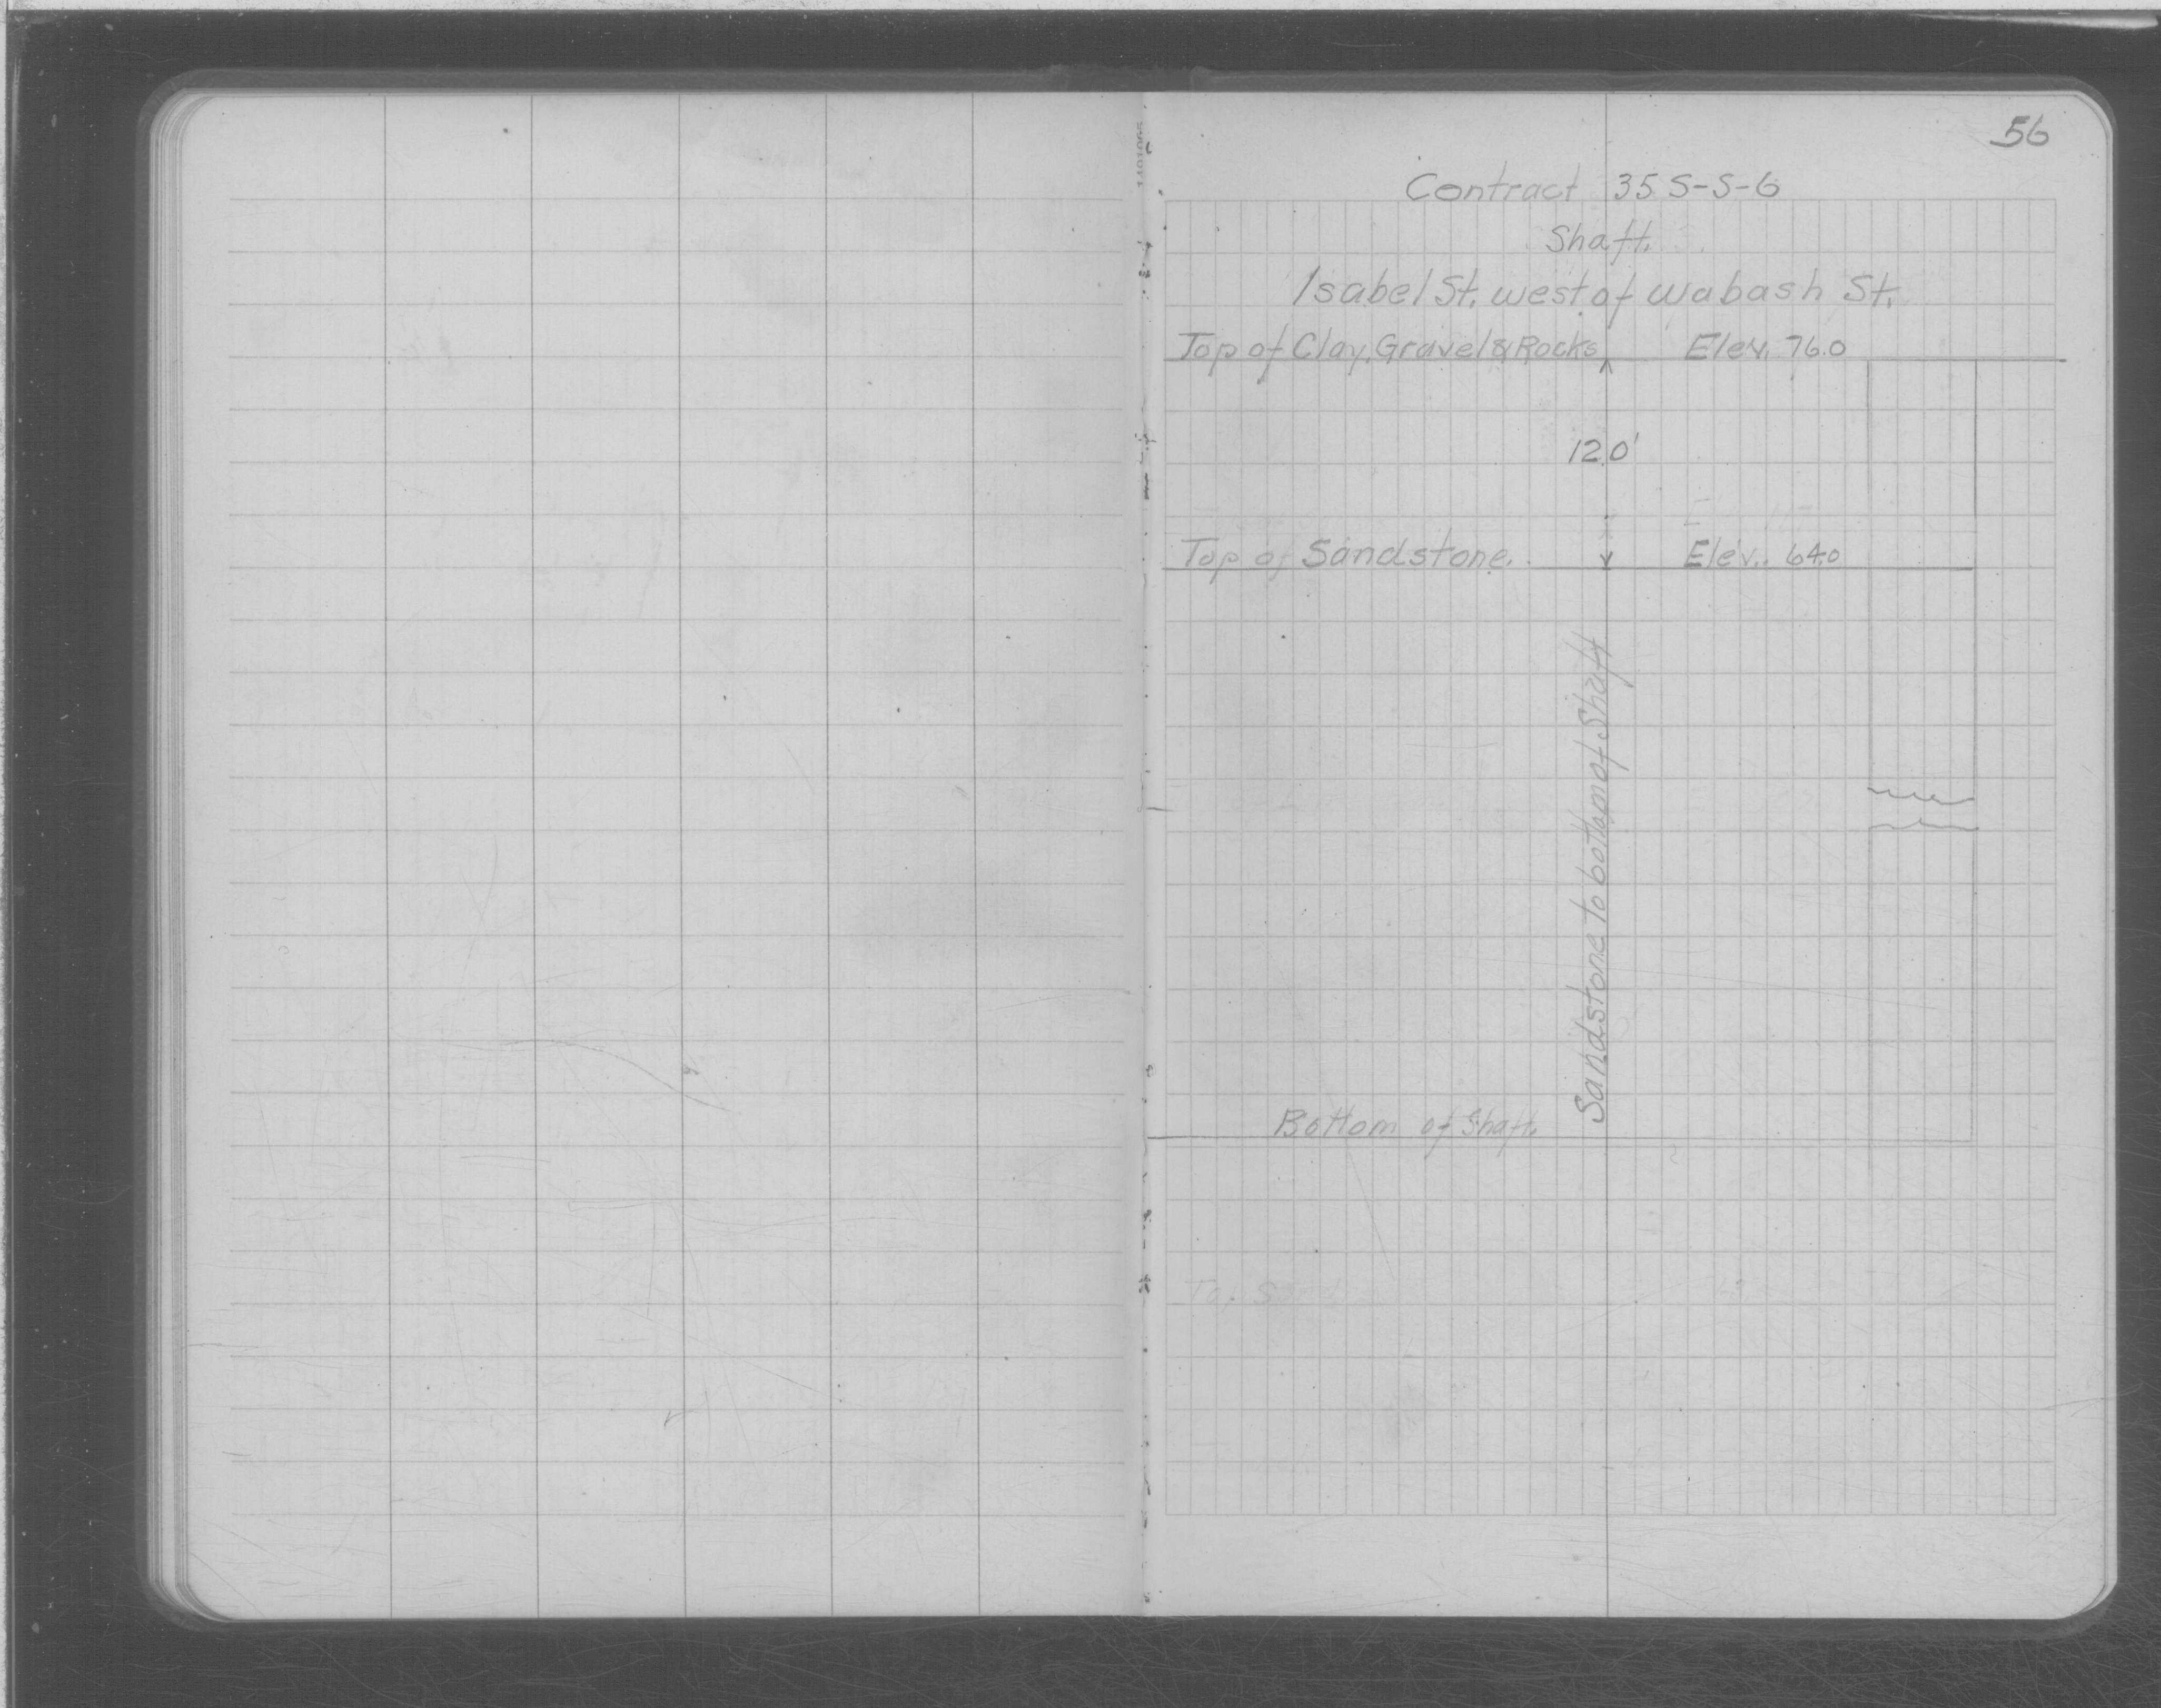 56
Contract 35 S-S-6
Shaft.
Isabel St. west of Wabash St.
Top of Clay, Gravel & Rocks Elev. 76.0
12.0'
Top of Sandstone. Elev. 64.0
Sandstone to bottom of Shaft
Bottom of Shaft.
Top Sand